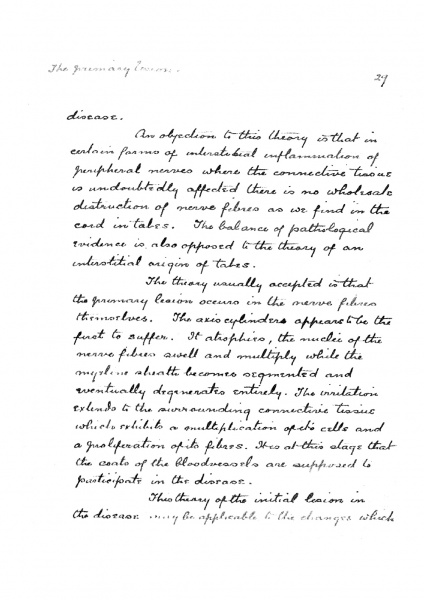 The primary lesion.
29
disease.
An objection to this theory is that in
certain forms of interstitial inflammation of
peripheral nerves where the connective tissue
is undoubtedly affected there is no wholesale
distruction of nerve fibres as we find in the
cord in tabes. The balance of pathological
evidence is also opposed to the theory of an
interstitial origin of tabes.
The theory usually accepted is that
the primary lesion occurs in the nerve fibres
themselves. The axis cylinders appears to be the
first to suffer. It atrophies, the nuclei of the
nerve fibres swell and multiply while the
myeline sheath becomes segmented and
eventually degenerates entirely. The irritation
extends to the surrounding connective tissue
which exhibits a multiplication of its cells and
a proliferation of its fibres. It is at this stage that
the coats of the bloodvessels are supposed to
participate in the disease.
This theory of the initial lesion in
the disease may be applicable to the changes which